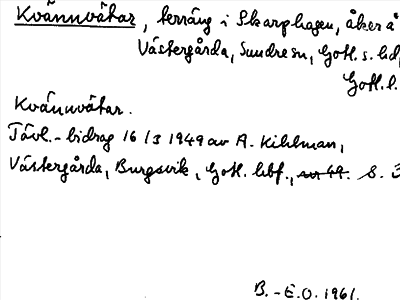 Kvännvätar, terräng i Skarphagen, åker å
Västergårda, Sundre sn, Gotl. s. hd,
Gotl. l.
Kvännvätar.
Tävl.-bidrag 16/3 1949 av A. Kihlman,
Västergårda, Burgsvik, Gotl. hbf., s. 3
B.-E.O. 1961.